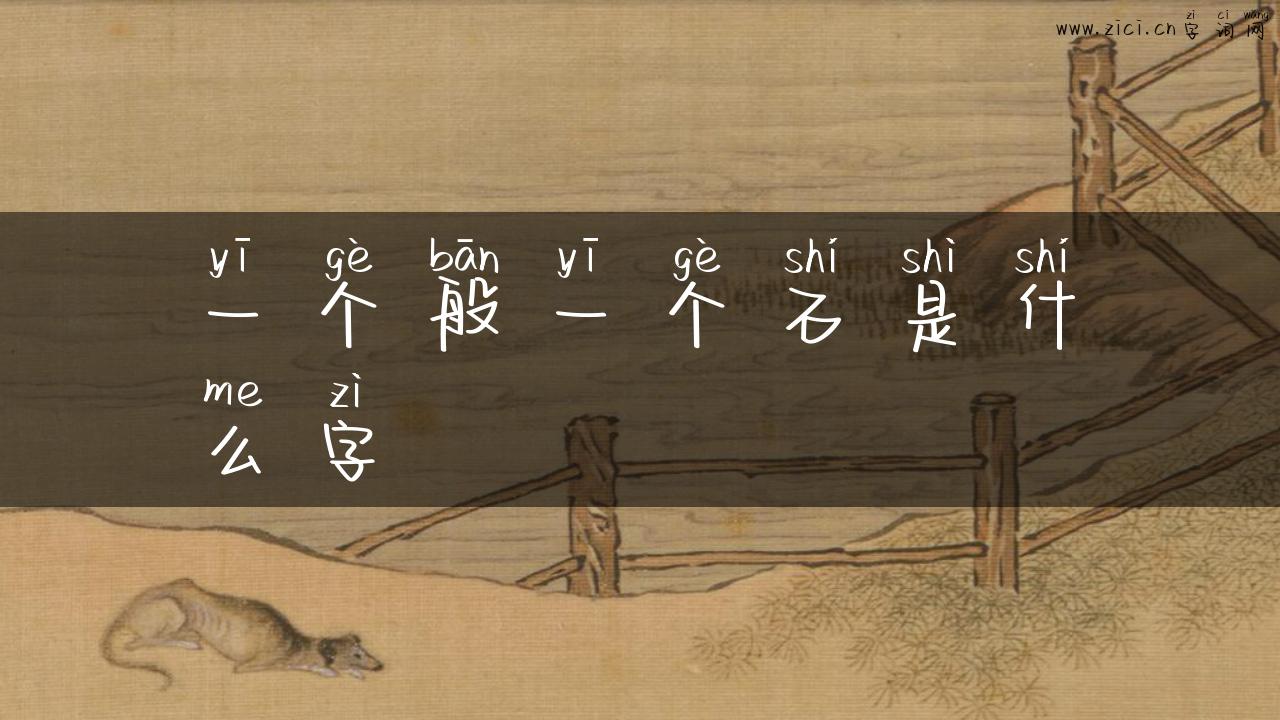 zì cí wǎng
www.zici.cn 字词网
yī gè bān yī gè shí shì shí
一个般一个石是什
me zì
么字